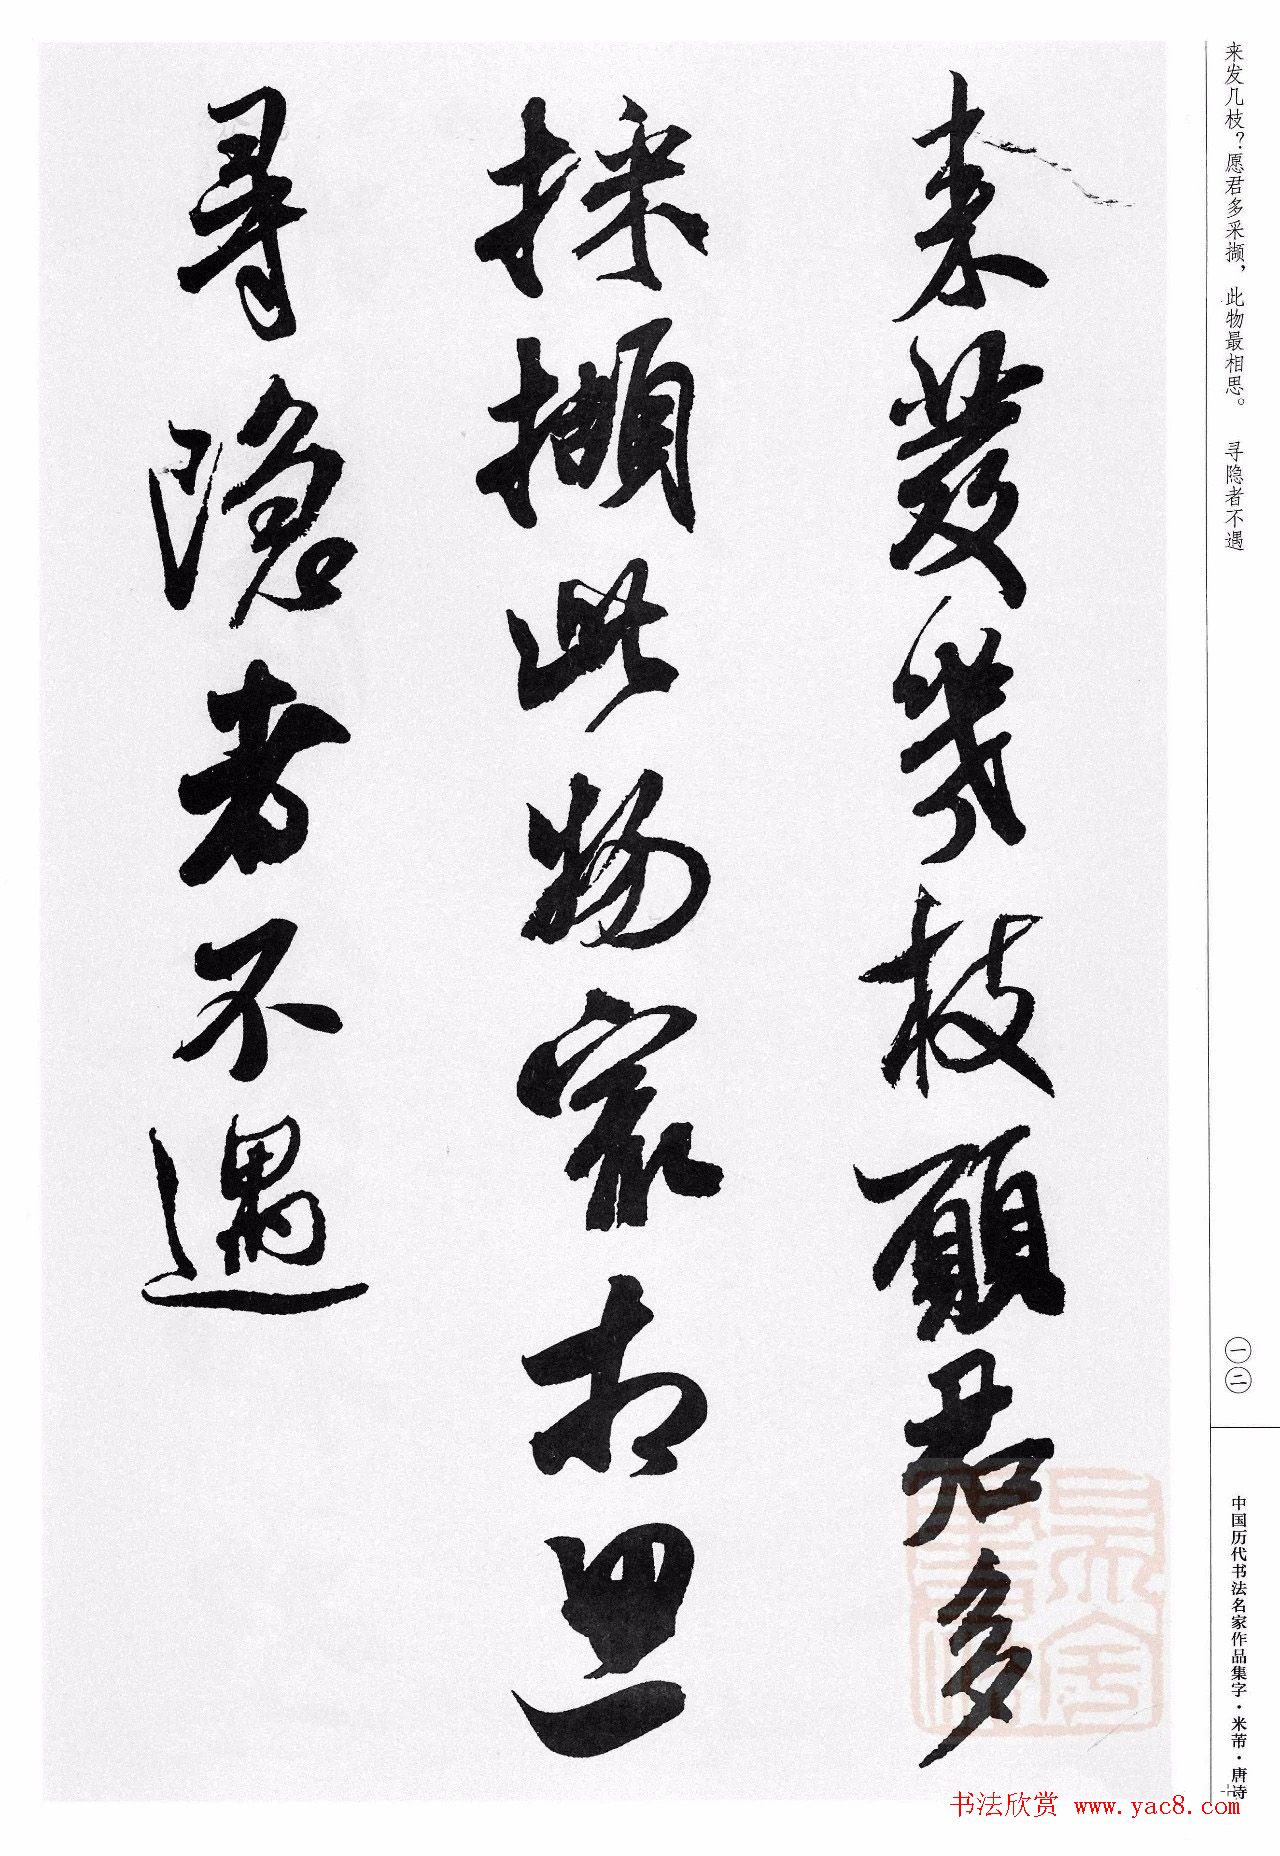 来发几枝？愿君多采撷，此物最相思。　寻隐者不遇
来發幾枝願君多
採擷此物最相思
尋隱者不遇
一二
中国历代书法名家作品集字·米芾·唐诗
书法欣赏 www.yac8.com